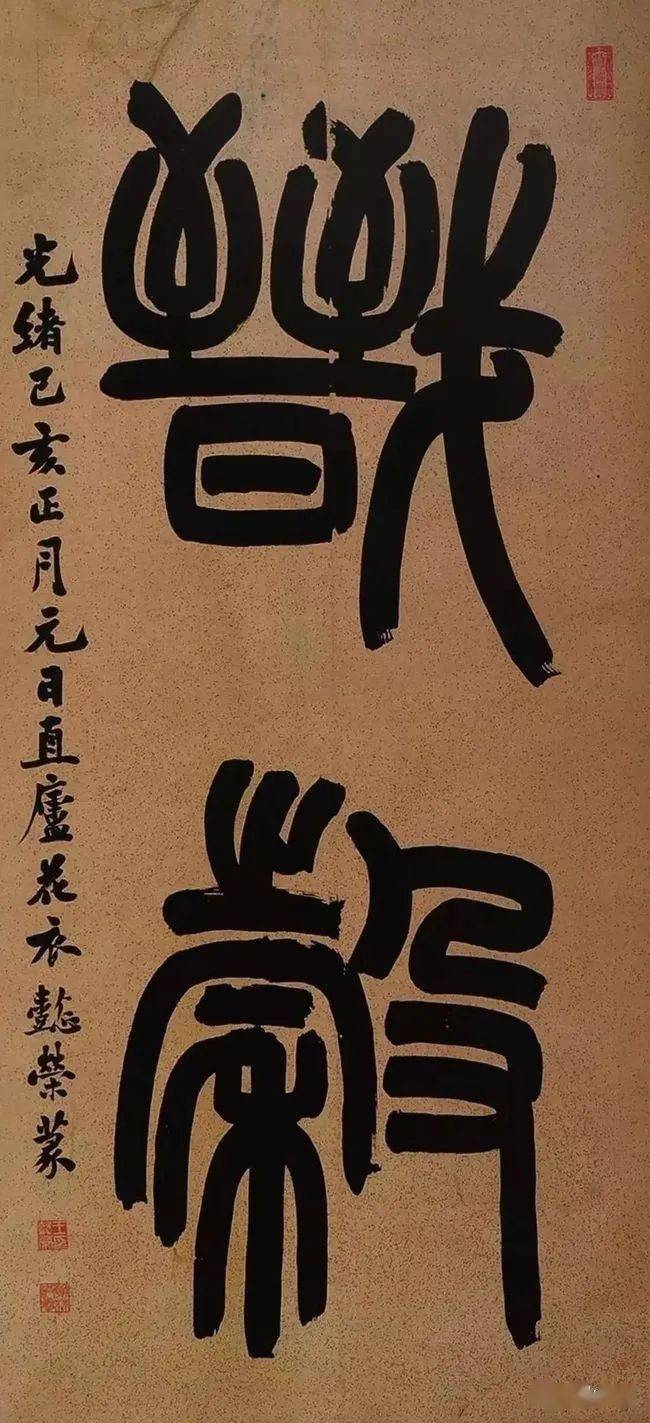 戩穀
光緒己亥正月元日直廬花衣懿榮篆